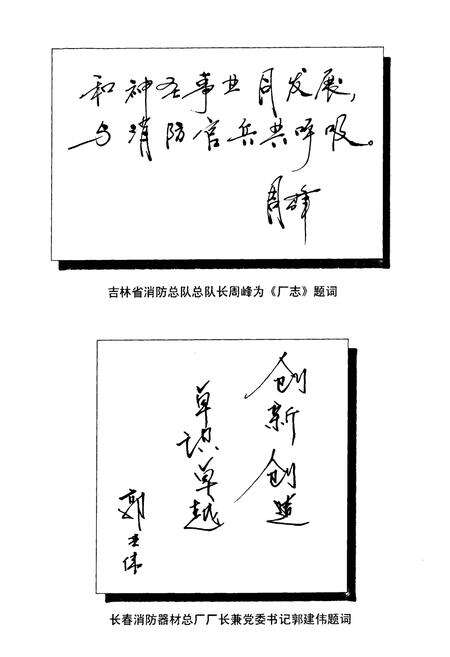 和神圣事业同发展，
与消防官兵共呼吸。
周峰
吉林省消防总队总队长周峰为《厂志》题词
创新创造
卓识卓越
郭建伟
长春消防器材总厂厂长兼党委书记郭建伟题词